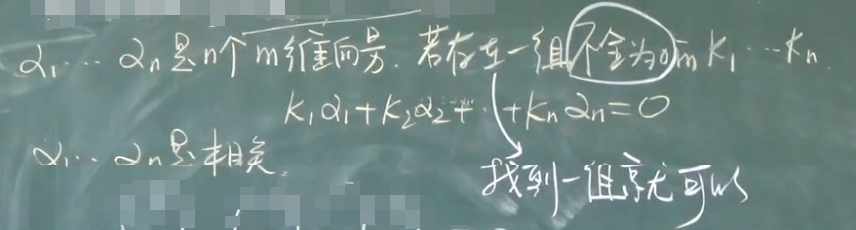 α₁ ⋯ αₙ是n个m维向量. 若存在一组不全为0的 k₁ ⋯ kₙ.
k₁α₁+k₂α₂+ ⋯ +kₙαₙ=0
α₁ ⋯ αₙ是相关.
找到一组就可以